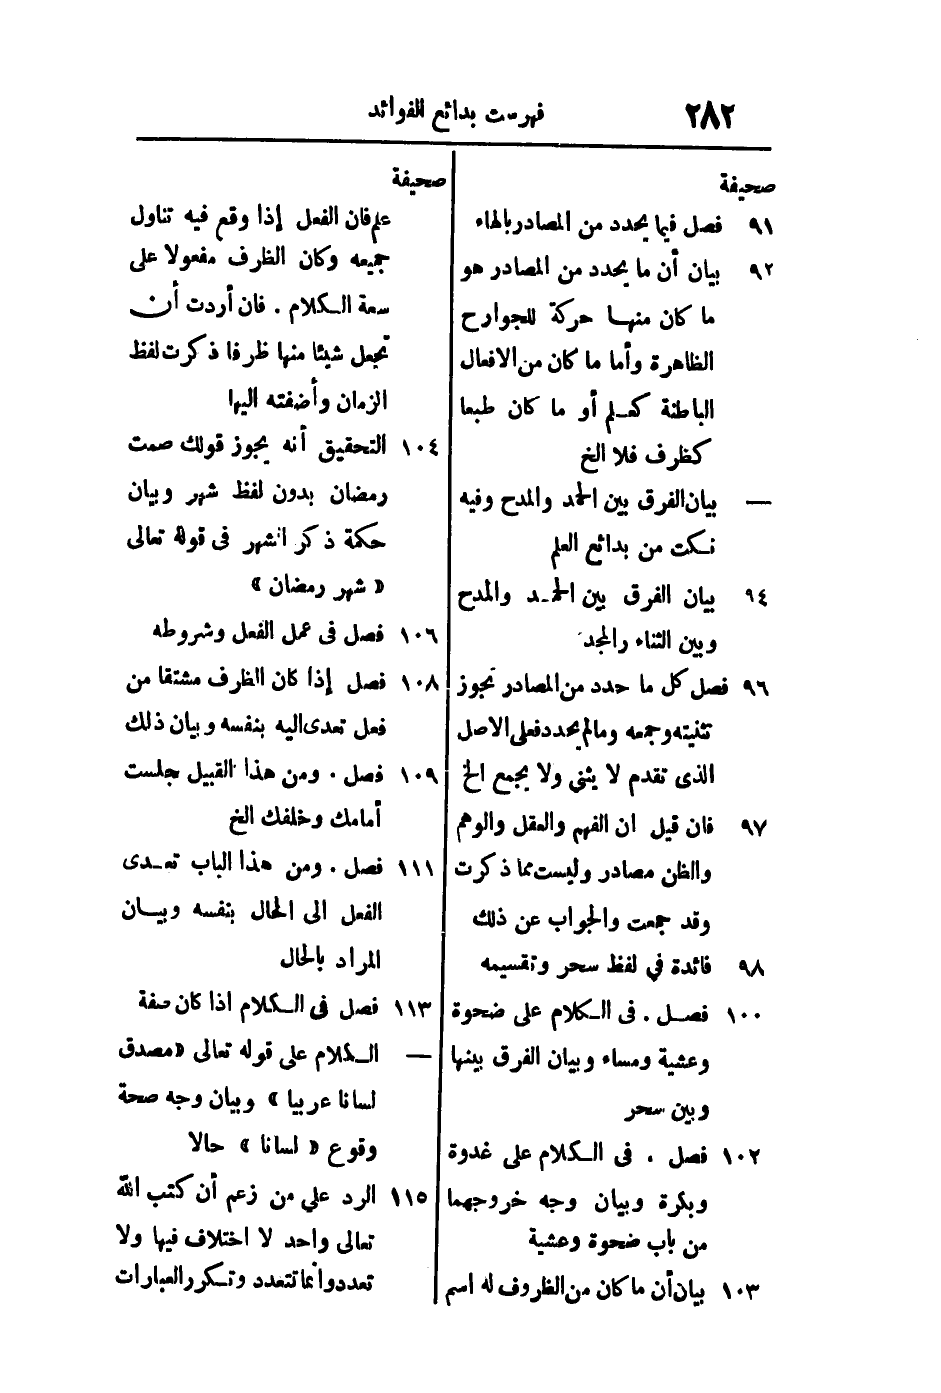 ٢٨٢ فهرست بدائع الفوائد
صحيفة
٩١ فصل فيما يحدد من المصادر بالهاء
٩٢ بيان أن ما يحدد من المصادر هو
ما كان منها حركة للجوارح
الظاهرة وأما ما كان من الافعال
الباطنة كعلم أو ما كان طبعا
كظرف فلا الخ
— بيان الفرق بين الحمد والمدح وفيه
نكت من بدائع العلم
٩٤ بيان الفرق بين الحمد والمدح
وبين الثناء والمجد
٩٦ فصل كل ما حدد من المصادر تجوز
تثنيته وجمعه ومالم يحدد فعلى الاصل
الذى تقدم لا يثنى ولا يجمع الخ
٩٧ فان قيل ان الفهم والعقل والوهم
والظن مصادر وليست مما ذكرت
وقد جمعت والجواب عن ذلك
٩٨ فائدة في لفظ سحر وتقسيمه
١٠٠ فصل . فى الكلام على ضحوة
وعشية ومساء وبيان الفرق بينها
وبين سحر
١٠٢ فصل . فى الكلام على غدوة
وبكرة وبيان وجه خروجهما
من باب ضحوة وعشية
١٠٣ بيان أن ما كان من الظروف له اسم
صحيفة
علم فان الفعل إذا وقع فيه تناول
جميعه وكان الظرف مفعولا على
سعة الكلام . فان أردت أن
تجعل شيئا منها ظرفا ذكرت لفظ
الزمان وأضفته اليها
١٠٤ التحقيق أنه يجوز قولك صمت
رمضان بدون لفظ شهر وبيان
حكمة ذكر الشهر فى قوله تعالى
« شهر رمضان »
١٠٦ فصل فى عمل الفعل وشروطه
١٠٨ فصل إذا كان الظرف مشتقا من
فعل تعدى اليه بنفسه وبيان ذلك
١٠٩ فصل . ومن هذا القبيل جلست
أمامك وخلفك الخ
١١١ فصل . ومن هذا الباب تعدى
الفعل الى الحال بنفسه وبيان
المراد بالحال
١١٣ فصل فى الكلام اذا كان صفة
— الكلام على قوله تعالى «مصدق
لسانا عربيا » وبيان وجه صحة
وقوع « لسانا » حالا
١١٥ الرد على من زعم أن كتب الله
تعالى واحد لا اختلاف فيها ولا
تعدد وانما تتعدد وتكرر العبارات